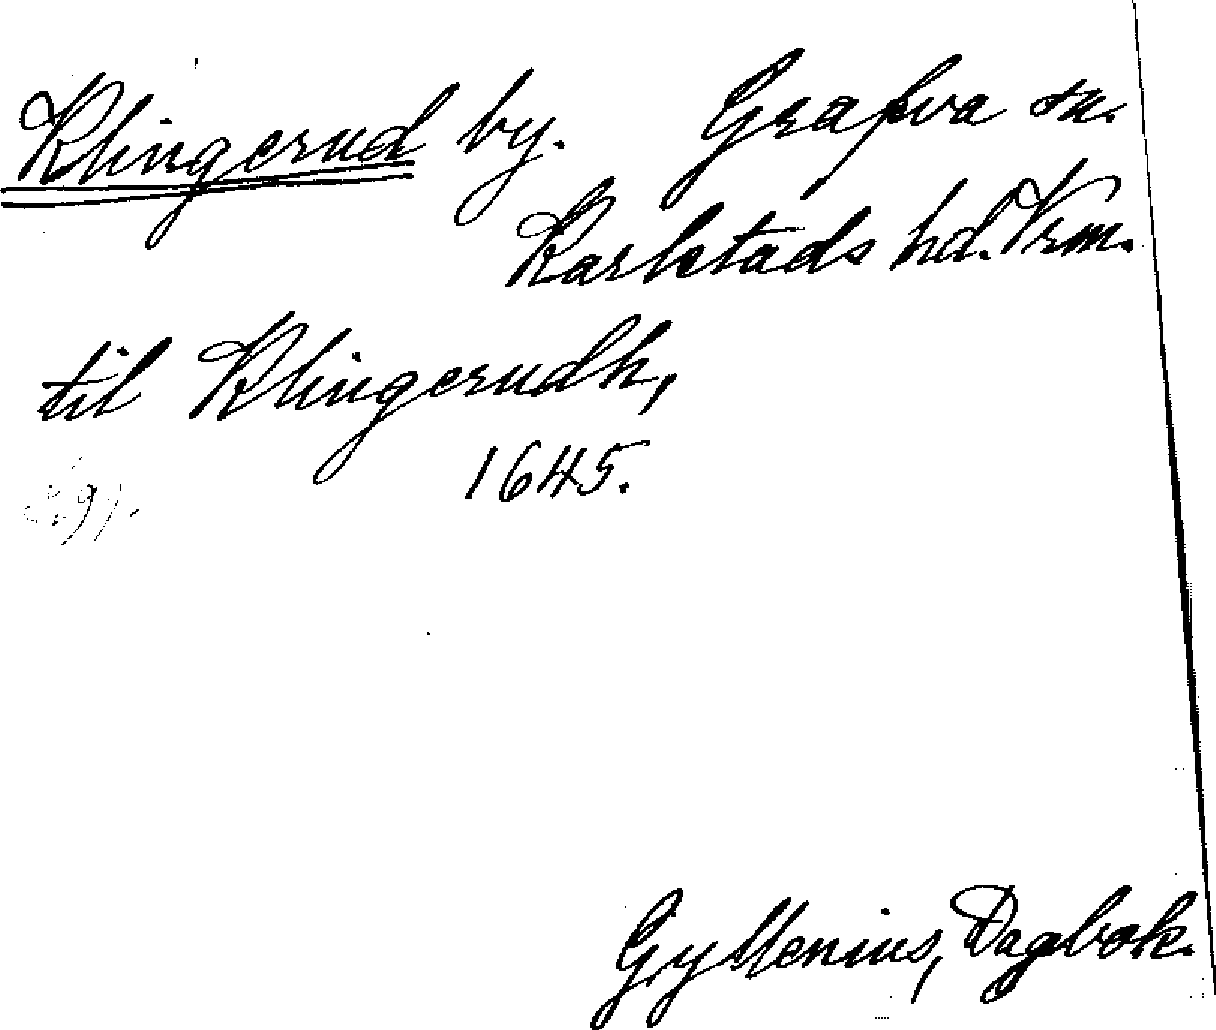 Klingerud by. Grafva sn.
Karlstads hd. Vrm.
til Klingerudh,
1645.
Gyllenius, Dagbok.